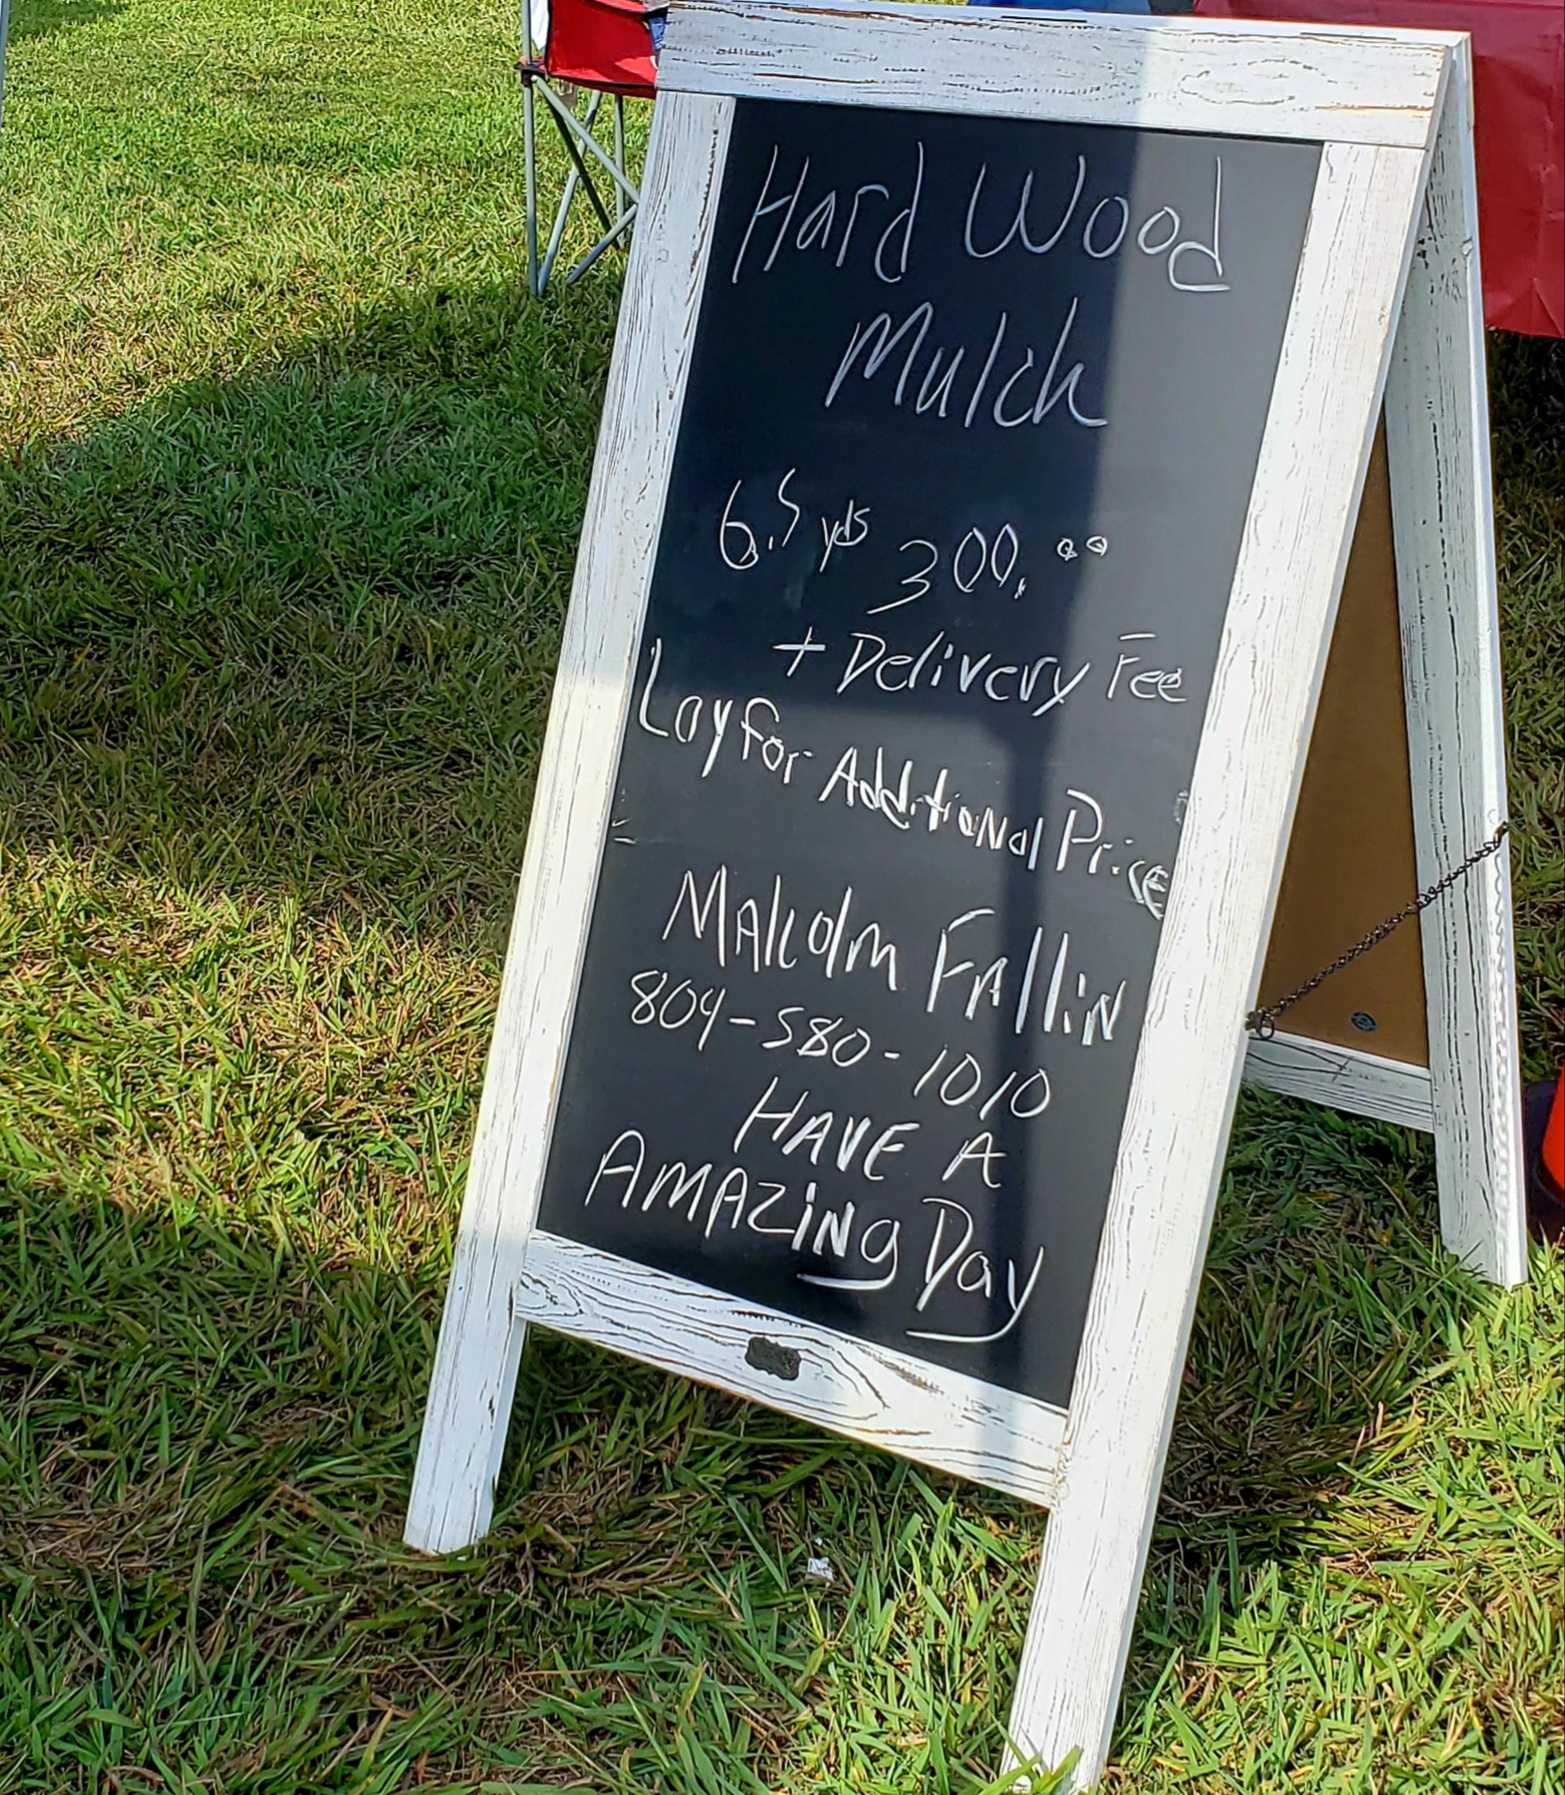 Hard Wood
Mulch
6.5 yds 300.00
+ Delivery Fee
Lay for Additional Price
Malcolm Fallin
804-580-1010
HAVE A
AMAZiNg Day